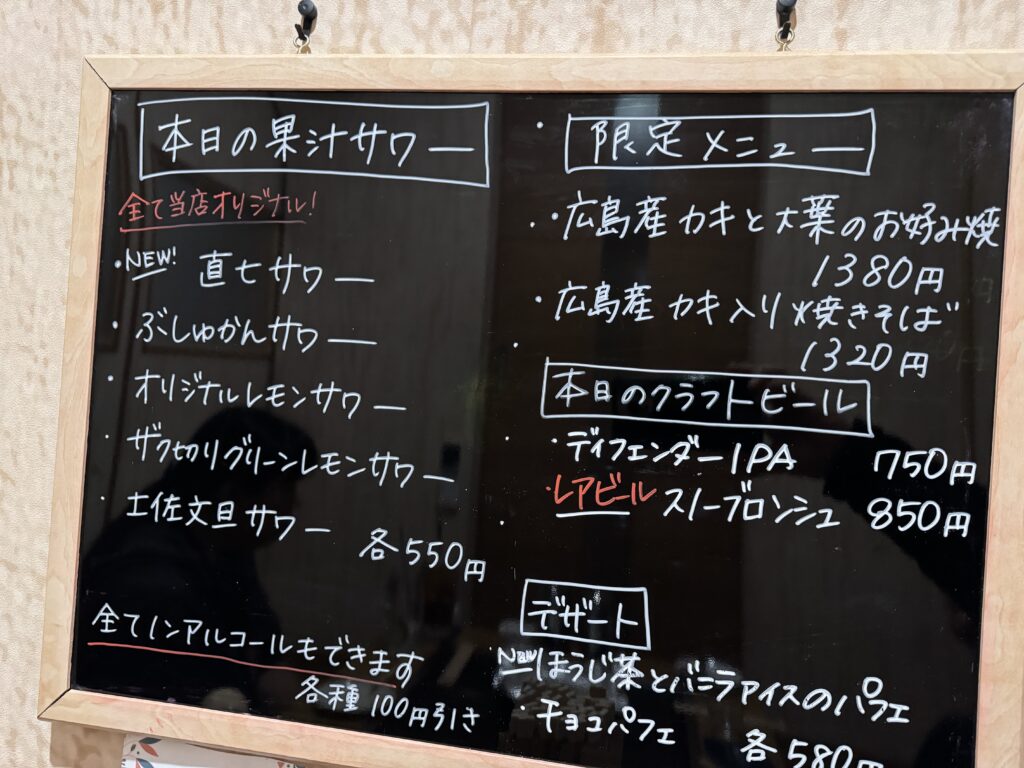 本日の果汁サワー
全て当店オリジナル!
・NEW! 直七サワー
・ぶしゅかんサワー
・オリジナルレモンサワー
・ザク切りグリーンレモンサワー
・土佐文旦サワー
各550円
全てノンアルコールもできます
各種100円引き
限定メニュー
・広島産カキと大葉のお好み焼
1380円
・広島産カキ入り焼きそば
1320円
本日のクラフトビール
・ディフェンダーIPA 750円
・レアビール スノーブロンシュ 850円
デザート
・NEW ほうじ茶とバニラアイスのパフェ
・チョコパフェ
各580円